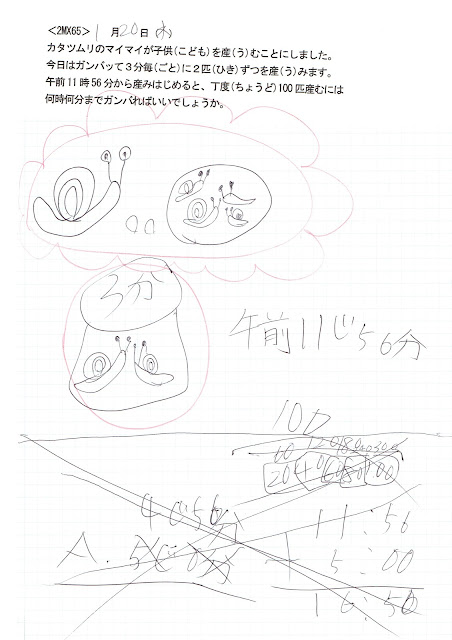 <2MX65> 1月20日(水)
カタツムリのマイマイが子供(こども)を産(う)むことにしました。
今日はガンバッて3分毎(ごと)に2匹(ひき)ずつを産(う)みます。
午前11時56分から産みはじめると、丁度(ちょうど)100匹産むには
何時何分までガンバればいいでしょうか。
3分
午前11じ56分
100
60 120 180
20 40 60 80 100
4じ56分
11:56
A.
+ 5:00
16:56